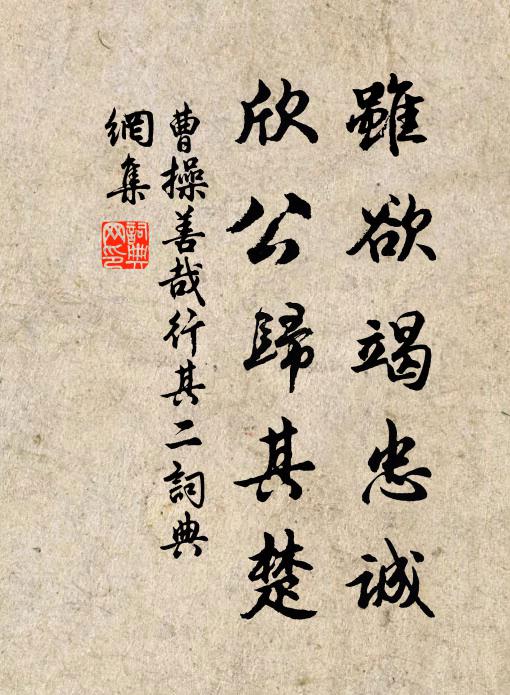 雖欲竭忠誠
欣公歸其楚
曹操善哉行其二詞典
網集
詞典网印